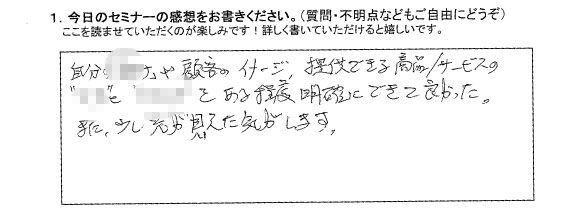 1. 今日のセミナーの感想をお書きください。(質問・不明点などもご自由にどうぞ)
ここを読ませていただくのが楽しみです!詳しく書いていただけると嬉しいです。
自分の や顧客のイメージ、提供できる商品/サービスの
" "と をある程度明確にできて良かった。
また、少し先が見えた気がします。